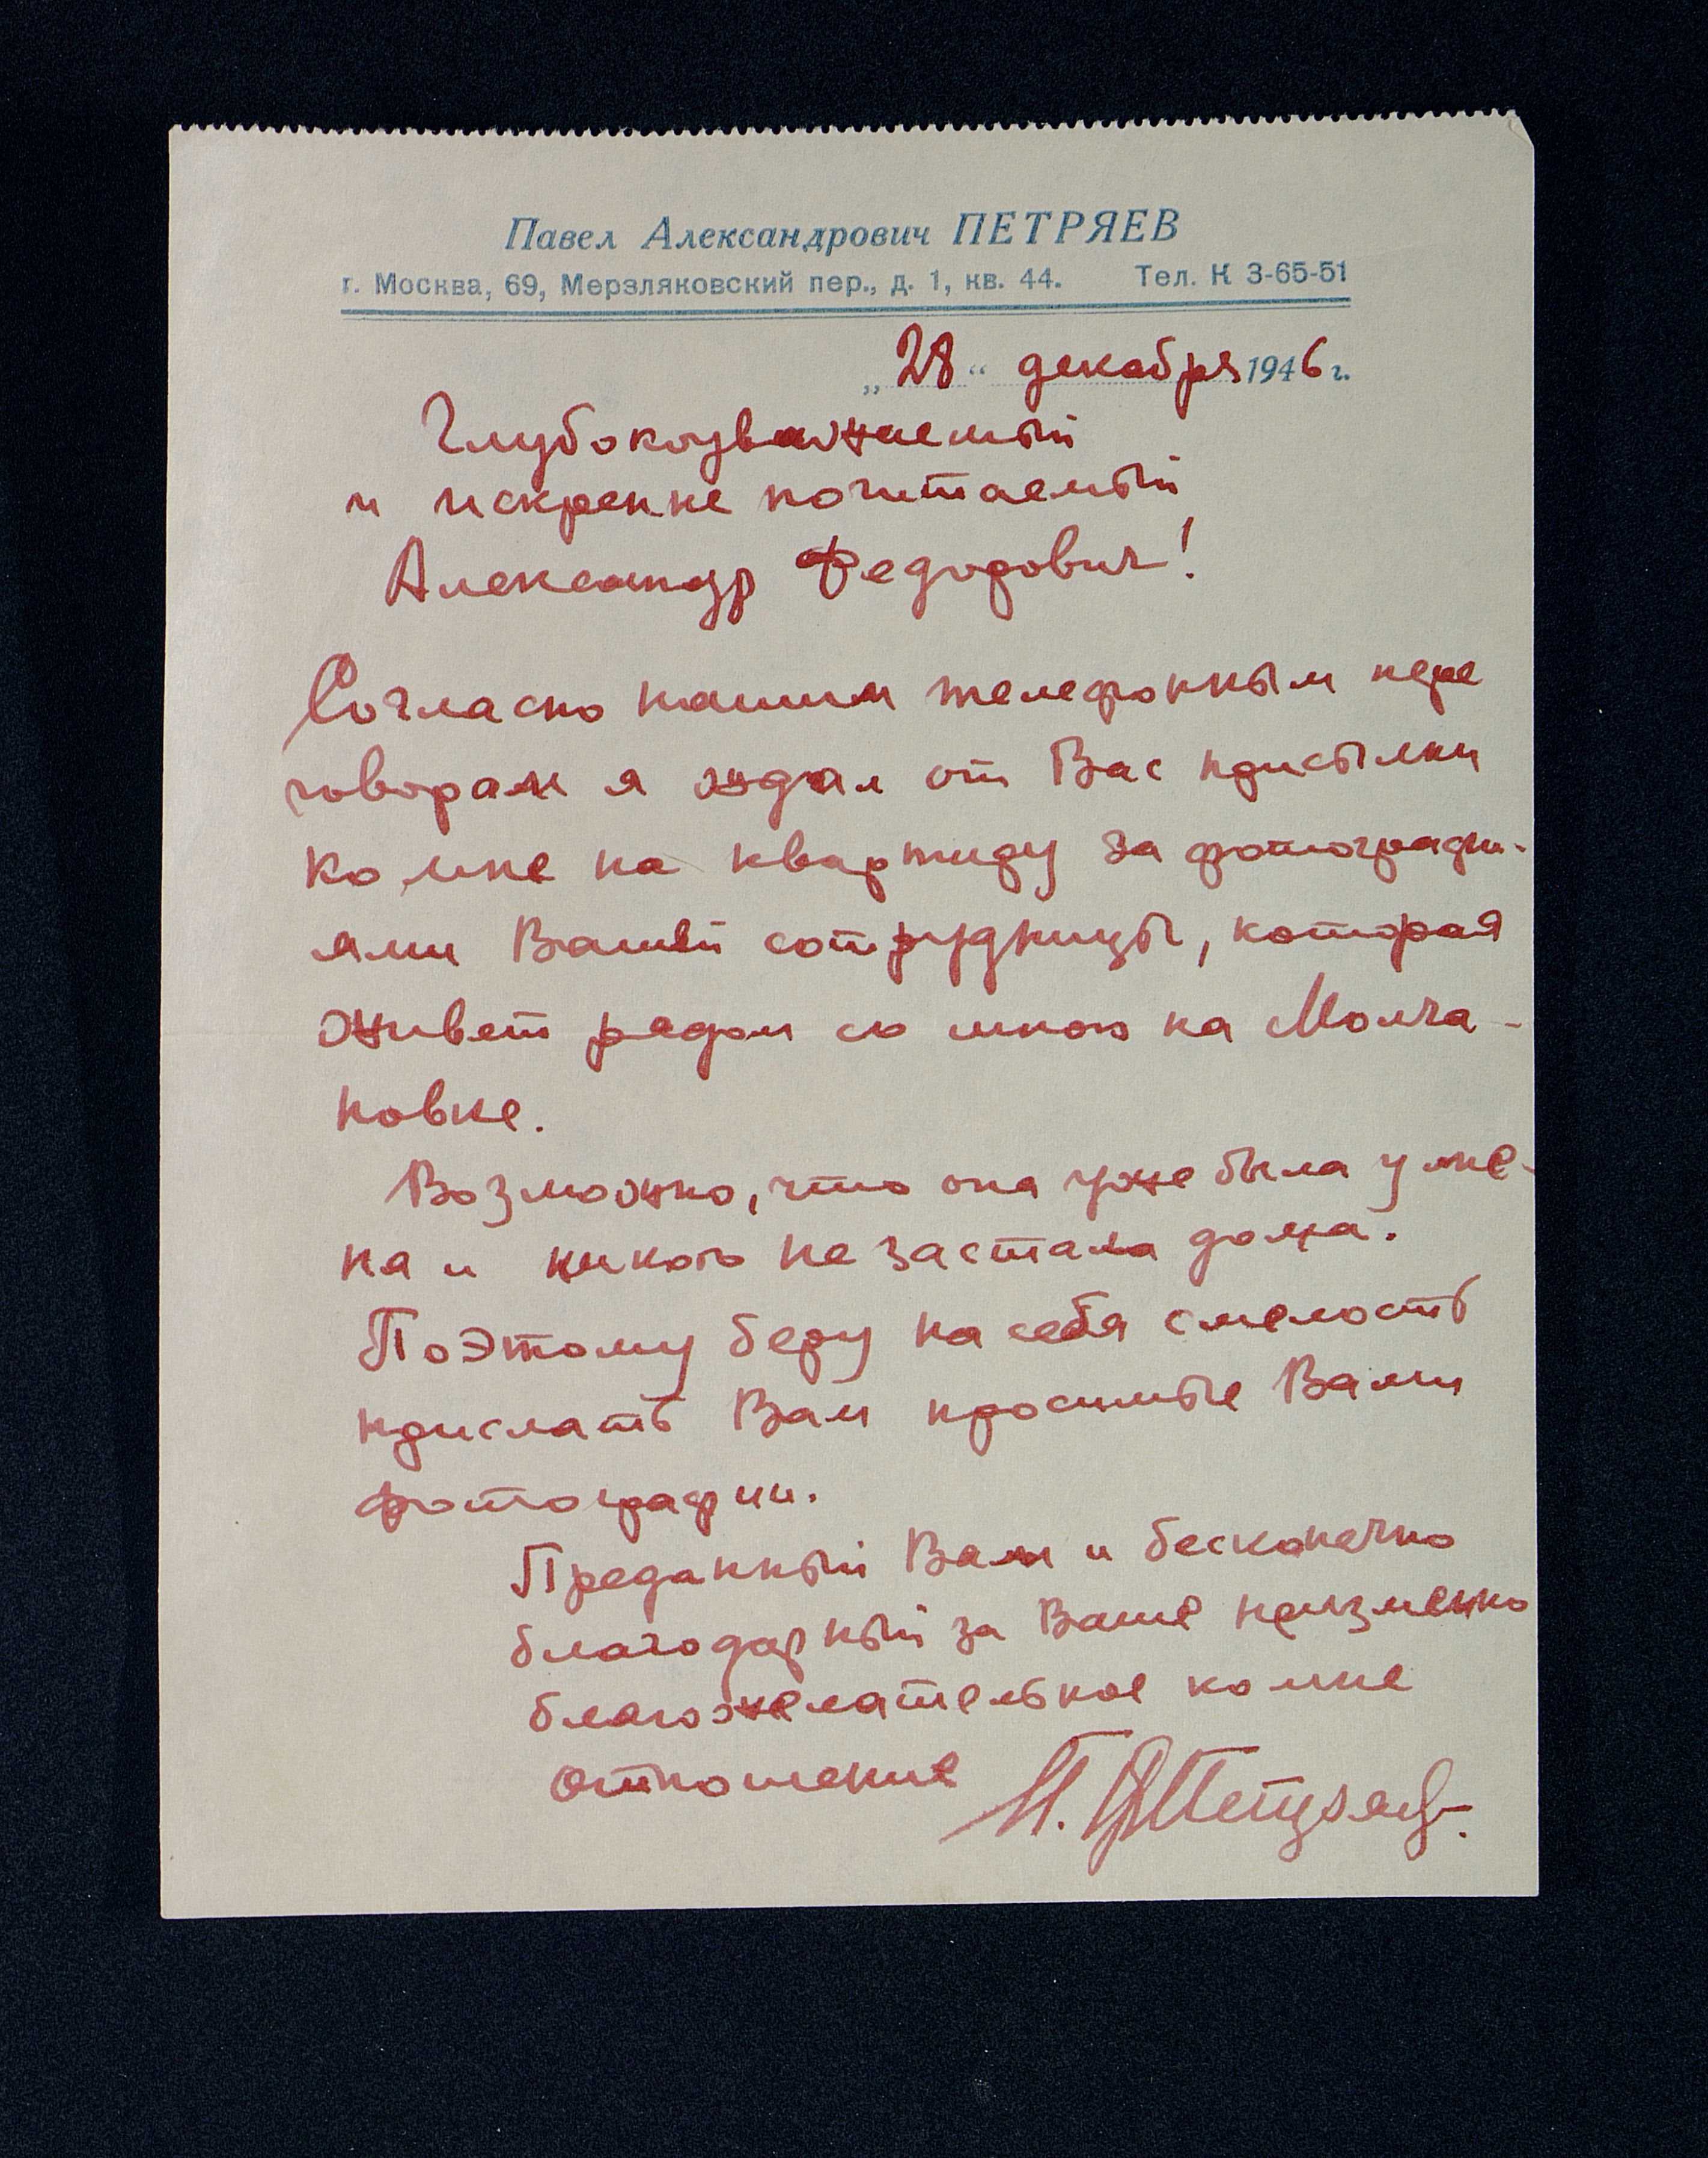 Павел Александрович ПЕТРЯЕВ
г. Москва, 69, Мерзляковский пер., д. 1, кв. 44. Тел. К 3-65-51
„28“ декабря 1946 г.
Глубокоуважаемый
и искренне почитаемый
Александр Федорович!
Согласно нашим телефонным пере
говорам я ждал от Вас присылки
ко мне на квартиру за фотографи-
ями Вашей сотрудницы, которая
живет рядом со мною на Молча-
новке.
Возможно, что она уже была у ме-
ня и никого не застала дома.
Поэтому беру на себя смелость
прислать Вам просимые Вами
фотографии.
Преданный Вам и бесконечно
благодарный за Ваше неизменно
благожелательное ко мне
отношение П. Петряев.